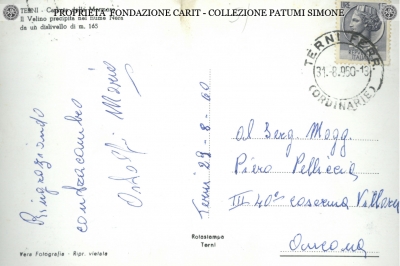 PROPRIETA' FONDAZIONE CARIT - COLLEZIONE PATUMI SIMONE
TERNI - Cascata delle Marmore
Il Velino precipita nel fiume Nera
da un dislivello di m. 165
TERNI FERR.
31-8-960-13
(ORDINARIE)
Ringraziando
contraccambio
Mario
Terni 29-8-60
Al Serg. Magg.
Piero Pelliccia
III 40° caserma Villarey
Ancona
Vera Fotografia - Ripr. vietata
Rotostampa
Terni